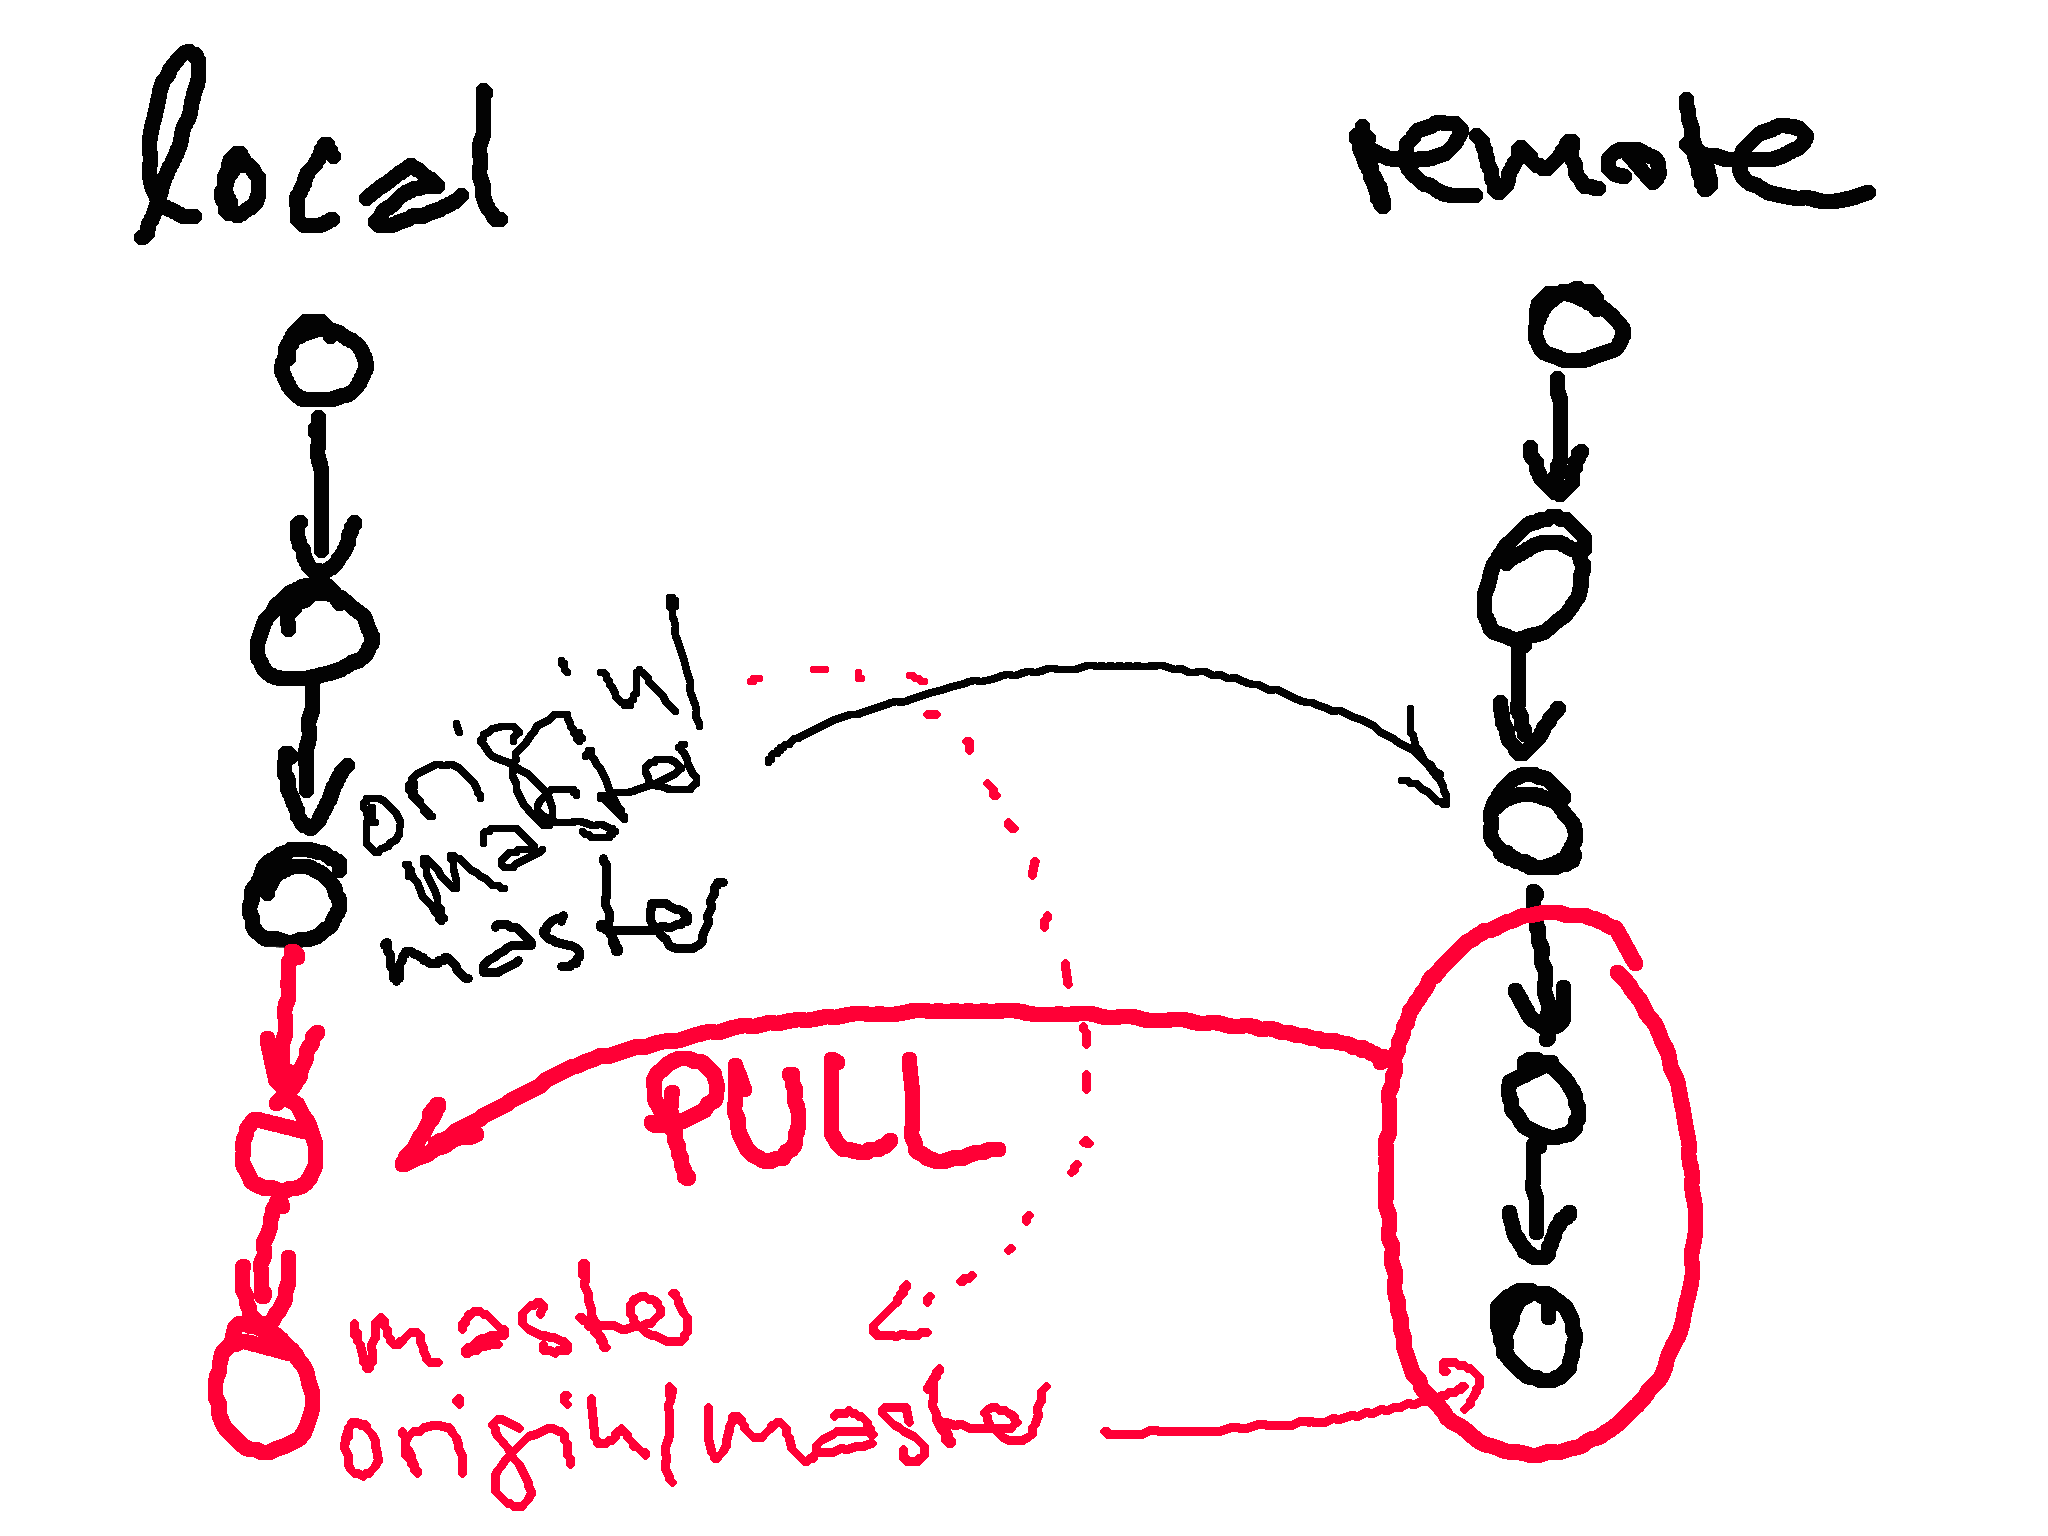 local
remote
origin/
master
master
PULL
master
origin/master